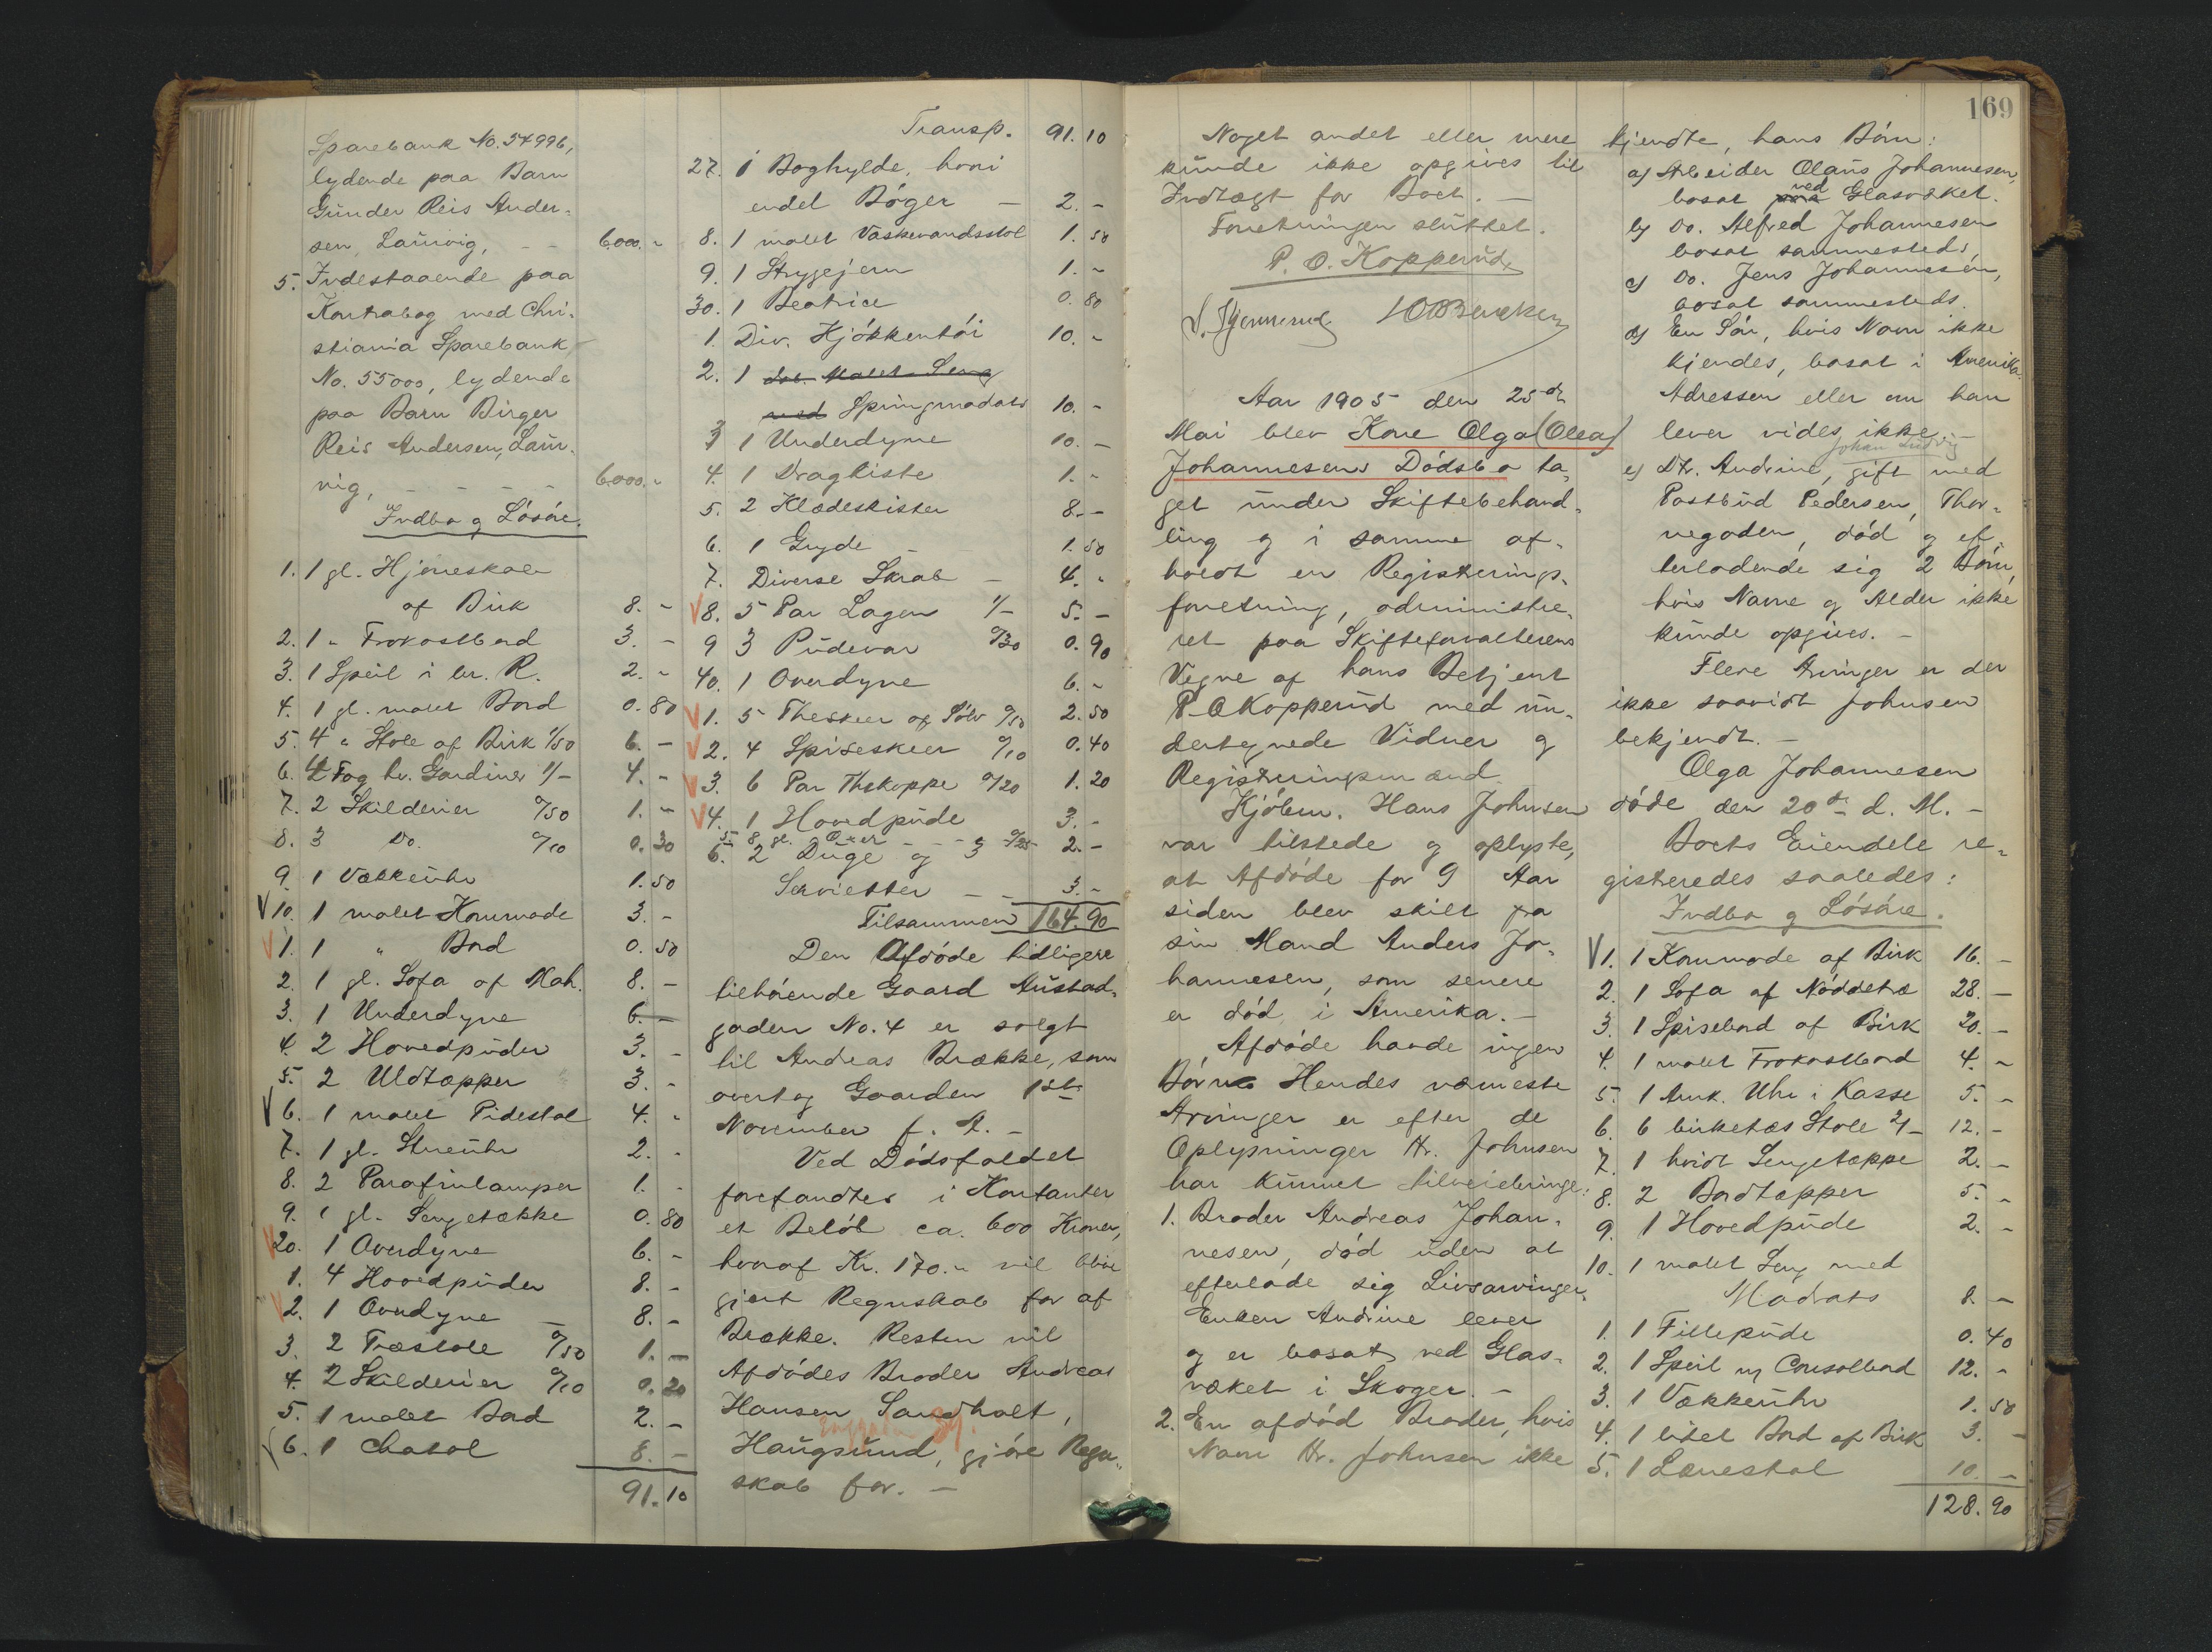 Sparebank No. 54996,
lydende paa Barn
Gunder Reis Ander-
sen, Laurvig, - - 6000.-
5. Indestaaende paa
Kontrabog med Chri-
stiania Sparebank
No. 55000, lydende
paa Barn Birger
Reis Andersen, Laur-
vig, - - - - 6000.-
Indbo og Løsøre.
1. 1 gl. Hjørneskab
af Birk 8. -
2. 1 " Frokostbord 3. -
3. 1 Speil i br. R. 2. -
4. 1 gl. malet Bord 0. 80
5. 4 " Stole af Birk 1/50 6. -
6. 4 Fag hv. Gardiner 1/- 4. -
7. 2 Skilderier 0/50 1. -
8. 3 Do. 0/10 0. 30
9. 1 Vækkeuhr 1. 50
10. 1 malet Kommode 3. -
1. 1 " Bord 0. 50
2. 1 gl. Sofa af Mah. 8. -
3. 1 Underdyne 6. -
4. 2 Hovedpuder 3. -
5. 2 Uldtæpper 3. -
6. 1 malet Pidestal 4. -
7. 1 gl. Stueuhr 2. -
8. 2 Parafinlamper 1. -
9. 1 gl. Sengetække 0. 80
20. 1 Overdyne 6. -
1. 4 Hovedpuder 8. -
2. 1 Overdyne - 8. -
3. 2 Træstole 0/50 1. -
4. 2 Skilderier 0/10 0. 20
5. 1 malet Bord 2. -
6. 1 Chatol 8. -
91. 10
Transp. 91. 10
27. 1 Boghylde, hvori
endel Bøger - 2. -
8. 1 malet Vaskevandsstol 1. 50
9. 1 Strygejern 1. -
30. 1 Beatrice 0. 80
1. Div. Kjøkkentøi 10. -
2. 1 dob. malet Seng
med Springmadats 10. -
3 1 Underdyne 10. -
4. 1 Dragkiste 1. -
5. 2 Klædeskister 8. -
6. 1 Gryde - 1. 50
7. Diverse Skrab - 4. -
8. 5 Par Lagen 1/- 5. -
9 3 Pudevar 0/30 0. 90
40. 1 Overdyne 6. -
1. 5 Theskeer af Sølv 0/50 2. 50
2. 4 Spiseskeer 0/10 0. 40
3. 6 Par Thekopper 0/20 1. 20
4. 1 Hovedpude 3. -
5. 8 gl. - - - 0/25 2. -
6. 2 Duge og 3
Servietter - - 3. -
Tilsammen 164. 90
Den Afdøde tidligere
tilhørende Gaard Austad-
gaden No. 4 er solgt
til Andreas Brække, som
overtog Gaarden 1ste
November f. A. -
Ved Dødsfaldet
forefandtes i Kontanter
et Beløb ca. 600 Kroner,
hvoraf Kr. 170.- vil blive
gjort Regnskab for af
Brække. Resten vil
Afdødes Broder Andreas
Hansen Sandholt,
Haugsund, gjøre Regn-
skab for. -
169
Noget andet eller mere
kunde ikke opgives til
Indtægt for Boet. -
Forretningen sluttet.
P. O. Kopperud
Aar 1905 den 25de
Mai blev Kone Olga (Olea)
Johannesens Dødsbo ta-
get under Skiftebehand-
ling og i samme af-
holdt en Registrerings-
forretning, administre-
ret paa Skifteforvalterens
Vegne af hans Betjent
P. O Kopperud med un-
dertegnede Vidner og
Registreringsmænd.
Kjøbm. Hans Johnsen
var tilstede og oplyste,
at Afdøde for 9 Aar
siden blev skilt fra
sin Mand Anders Jo-
hannesen, som senere
er død i Amerika. -
Afdøde havde ingen
Børn. Hendes nærmeste
Arvinger er efter de
Oplysninger Hr. Johnsen
har kunnet tilveiebringe:
1. Broder Andreas Johan-
nesen, død uden at
efterlade sig Livsarvinger.
Enken Andrine lever
og er bosat ved Glas-
værket i Skoger. -
2. En afdød Broder, hvis
Navn Hr. Johnsen ikke
kjendte, hans Børn:
a) Arbeider Olaus Johannesen,
bosat ved Glasværket.
b) Do. Alfred Johannesen
bosat sammesteds,
c) Do. Jens Johannesen,
bosat sammesteds.
d) En Søn, hvis Navn ikke
kjendes, bosat i Amerika.
Adressen eller om han
lever vides ikke. -
Johan Ludvig
e) Dtr. Andrine, gift med
Postbud Pedersen, Thor-
negaden, død og ef-
terladende sig 2 Børn,
hvis Navne og Alder ikke
kunde opgives. -
Flere Arvinger er der
ikke saavidt Johnsen
bekjendt. -
Olga Johannesen
døde den 20de d. M. -
Boets Eiendele re-
gistreredes saaledes:
Indbo og Løsøre.
1. 1 Kommode af Birk 16. -
2. 1 Sofa af Nøddetræ 28. -
3. 1 Spisebord af Birk 20. -
4. 1 malet Frokostbord 4. -
5. 1 Amk. Uhr i Kasse 5. -
6. 6 birketræs Stole 2/- 12. -
7. 1 hvidt Sengetæppe 2. -
8. 2 Bordtæpper 5. -
9. 1 Hovedpude 2. -
10. 1 malet Seng med
Madrats 8. -
1. 1 Fillepude 0. 40
2. 1 Speil m/ Consolbord 12. -
3. 1 Vækkeuhr 1. 50
4. 1 lidet Bord af Birk 3. -
5. 1 Lænestol 10. -
128. 90